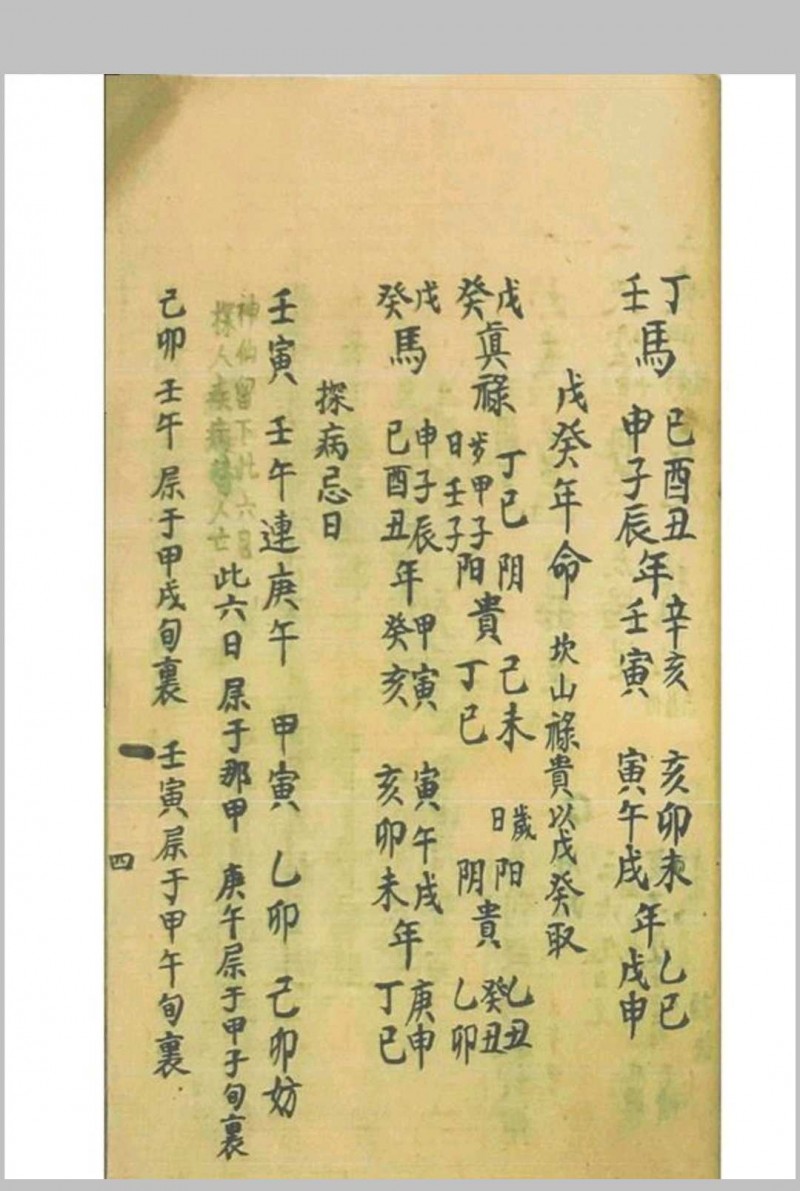 丁壬馬 巳酉丑申子辰年 辛亥壬寅 亥卯未寅午戌年 乙巳戊申
戊癸年命 坎山祿貴以戊癸取
戊癸真祿 丁巳 歲甲子日壬子 阴阳貴 己未丁巳 歲日 阳阴貴 乙丑癸丑乙卯
戊癸馬 申子辰巳酉丑年 甲寅癸亥 寅午戌亥卯未年 庚申丁巳
探病忌日
壬寅 壬午連庚午 甲寅 乙卯 己卯妨
神仙留下此六日
探人疾病替人亡
此六日屌于那甲 庚午屌于甲子旬裏
己卯壬午屌于甲戌旬裏 壬寅屌于甲午旬裏
四